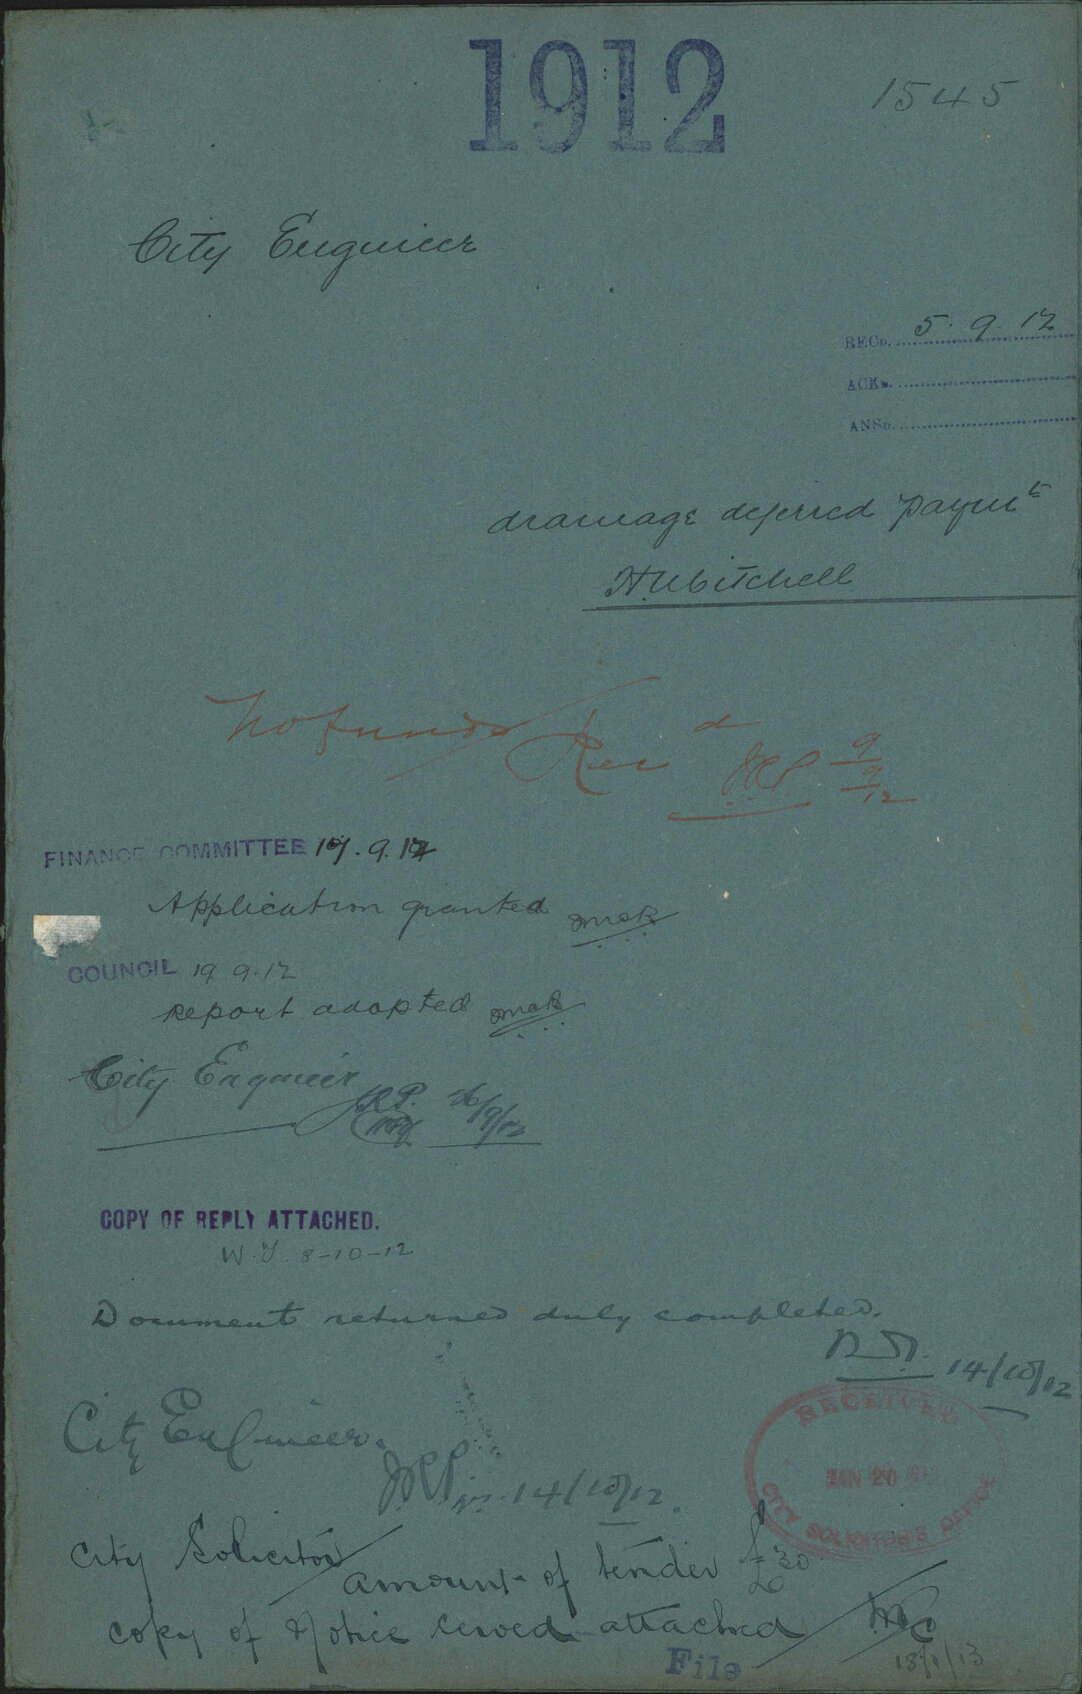 1912
1545
City Engineer
RECD. 5.9.12
ACKD.
ANSD.
drainage deferred paymts
H. Mitchell
No funds / Recd
JRP 9/9/12
FINANCE COMMITTEE 17.9.12
Application granted
COUNCIL 19.9.12
Report adopted
City Engineer
JRP. /9/12
COPY OF REPLY ATTACHED.
W.J. 8-10-12
Document returned duly completed.
14/10/12
City Engineer.
JRP 14/10/12.
RECEIVED
JAN 20
CITY SOLICITOR'S OFFICE
City Solicitor
amount of tender £30
copy of Notice served attached
18/1/13
File